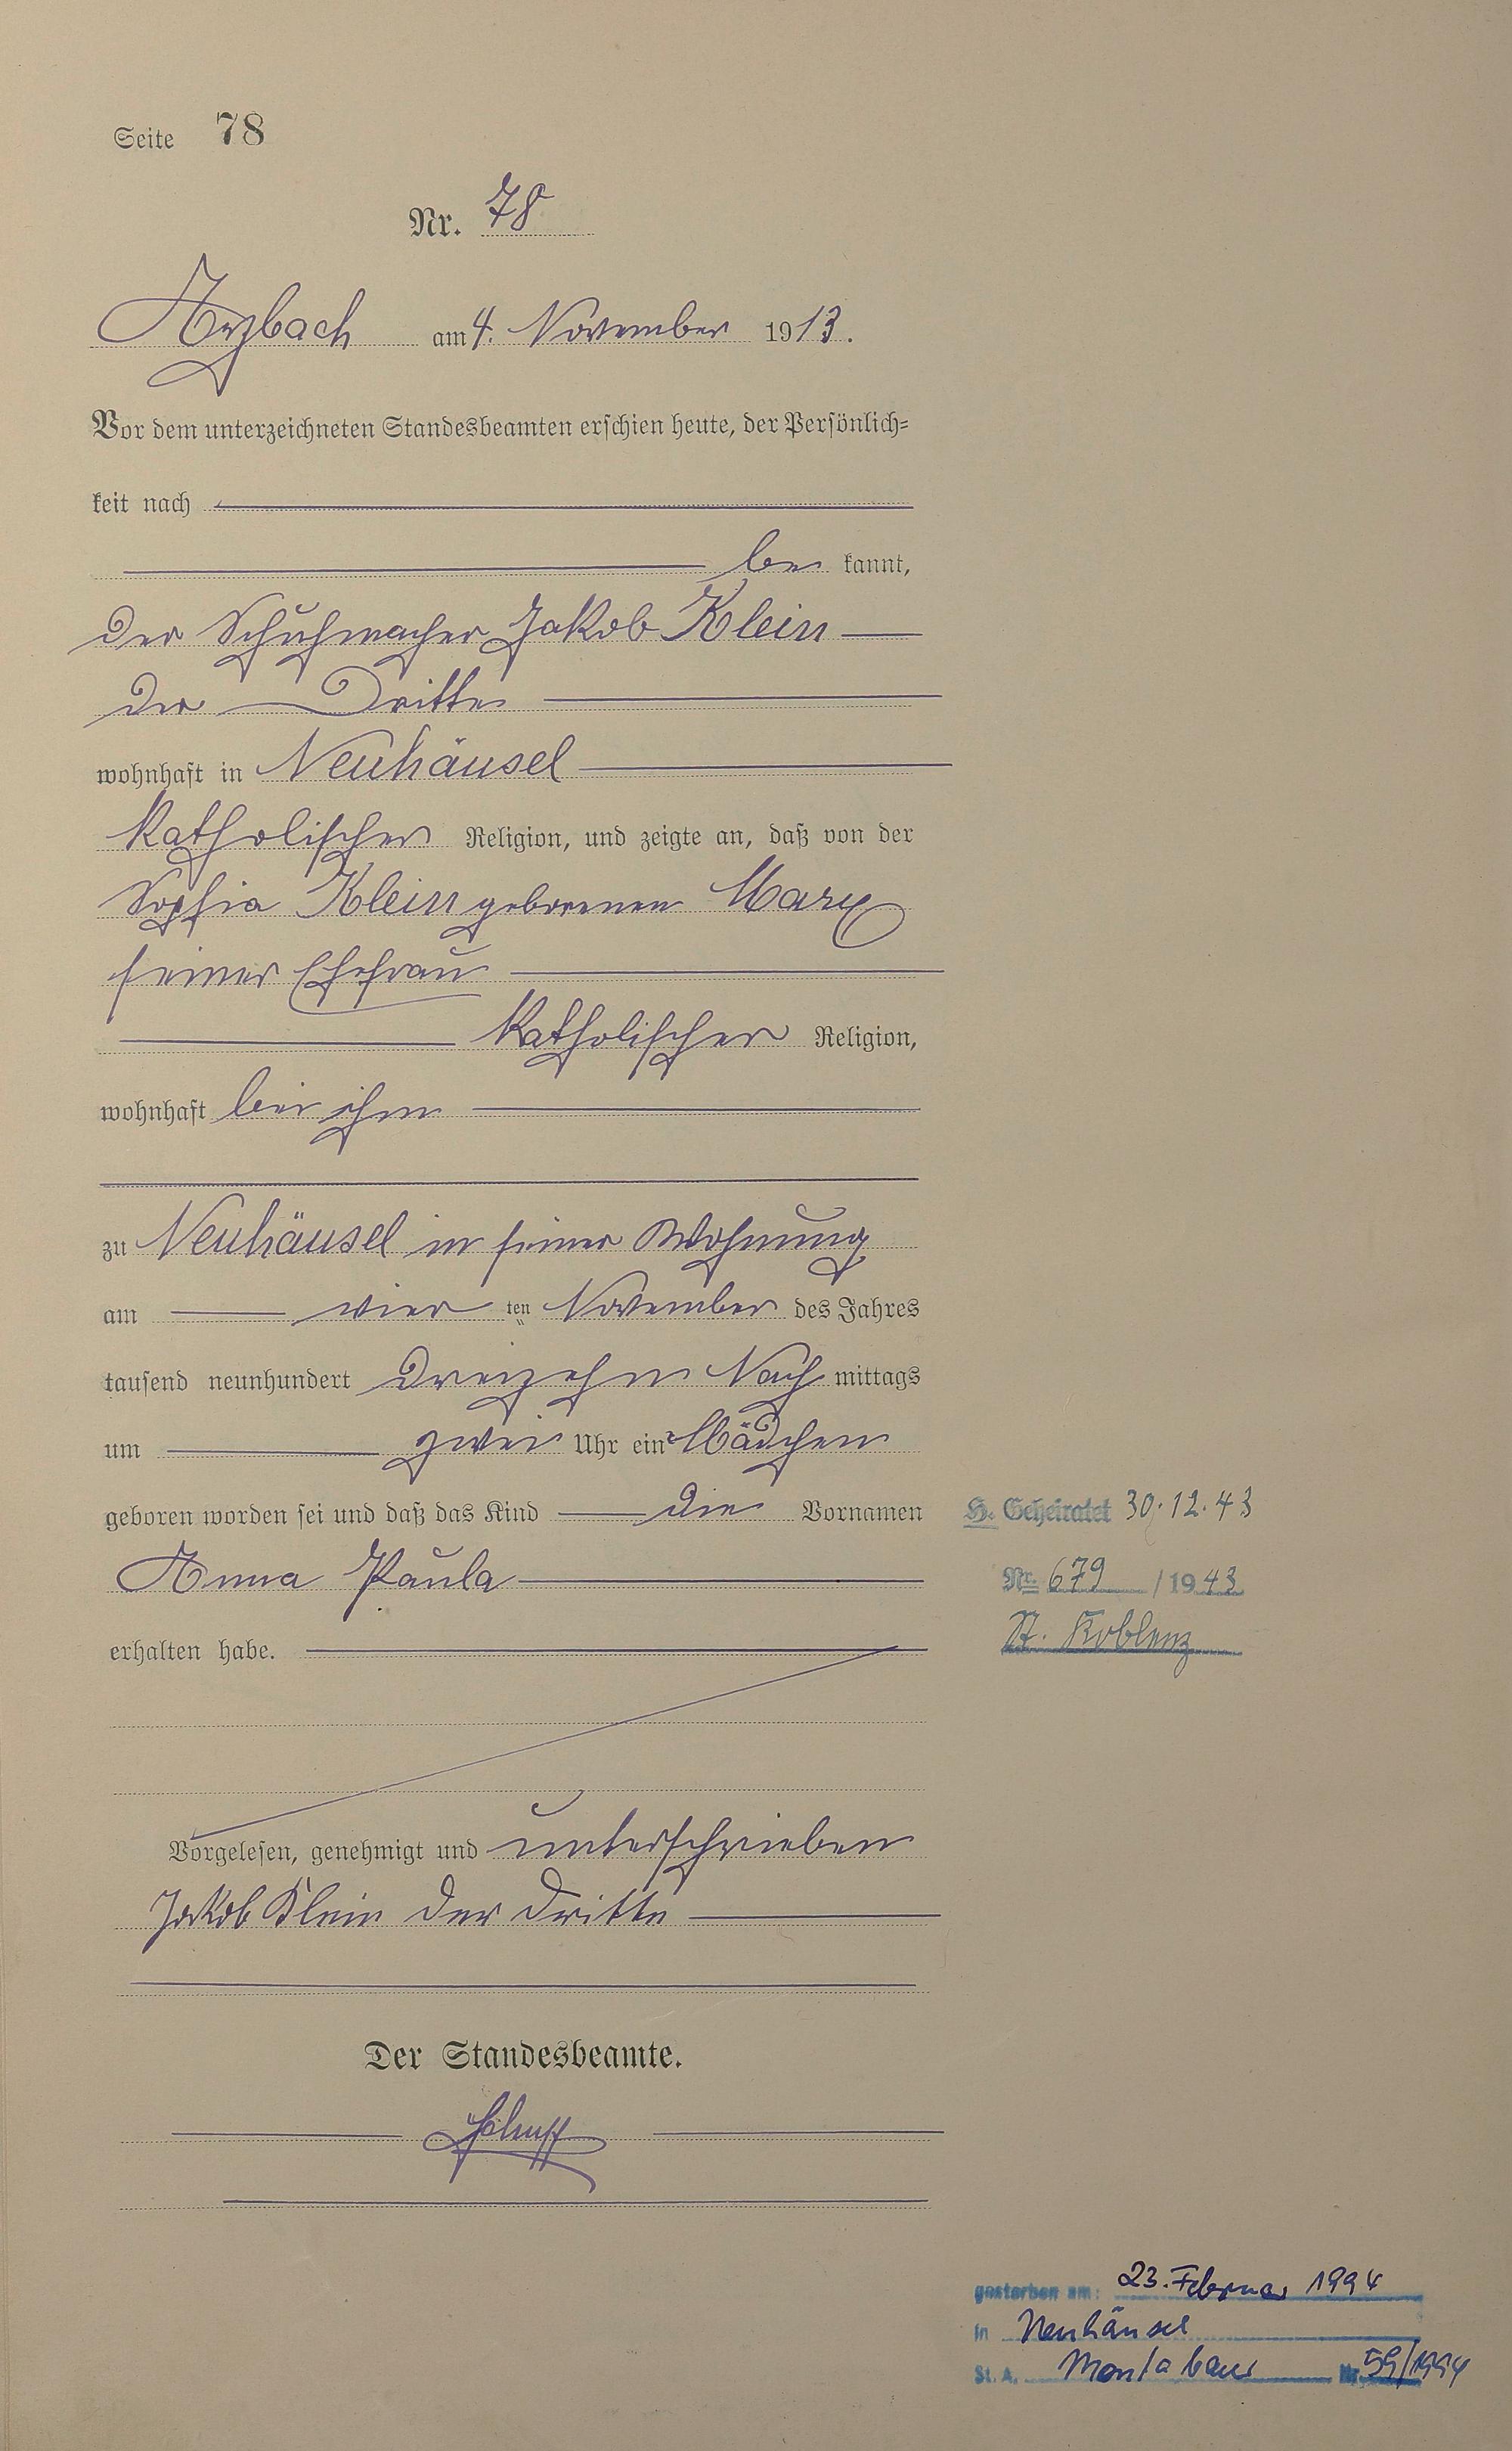 Seite 78
Nr. 78
Arzbach am 4. November 1913.
Vor dem unterzeichneten Standesbeamten erschien heute, der Persönlich=
keit nach
be kannt,
der Schuhmacher Jakob Klein
der Dritte
wohnhaft in Neuhäusel
katholischer Religion, und zeigte an, daß von der
Sophia Klein geborenen Marx
seiner Ehefrau
katholischer Religion,
wohnhaft bei ihm
zu Neuhäusel in seiner Wohnung
am vier ten November des Jahres
tausend neunhundert dreizehn Nach mittags
um zwei Uhr ein Mädchen
geboren worden sei und daß das Kind die Vornamen
Anna Paula
erhalten habe.
Vorgelesen, genehmigt und unterschrieben
Jakob Klein der Dritte
Der Standesbeamte.
H. Geheiratet 30.12.43
Nr. 679 / 1943
St. Koblenz
gestorben am: 23. Februar 1994
in Neuhäusel
St. A. Montabaur Nr. 59/1994